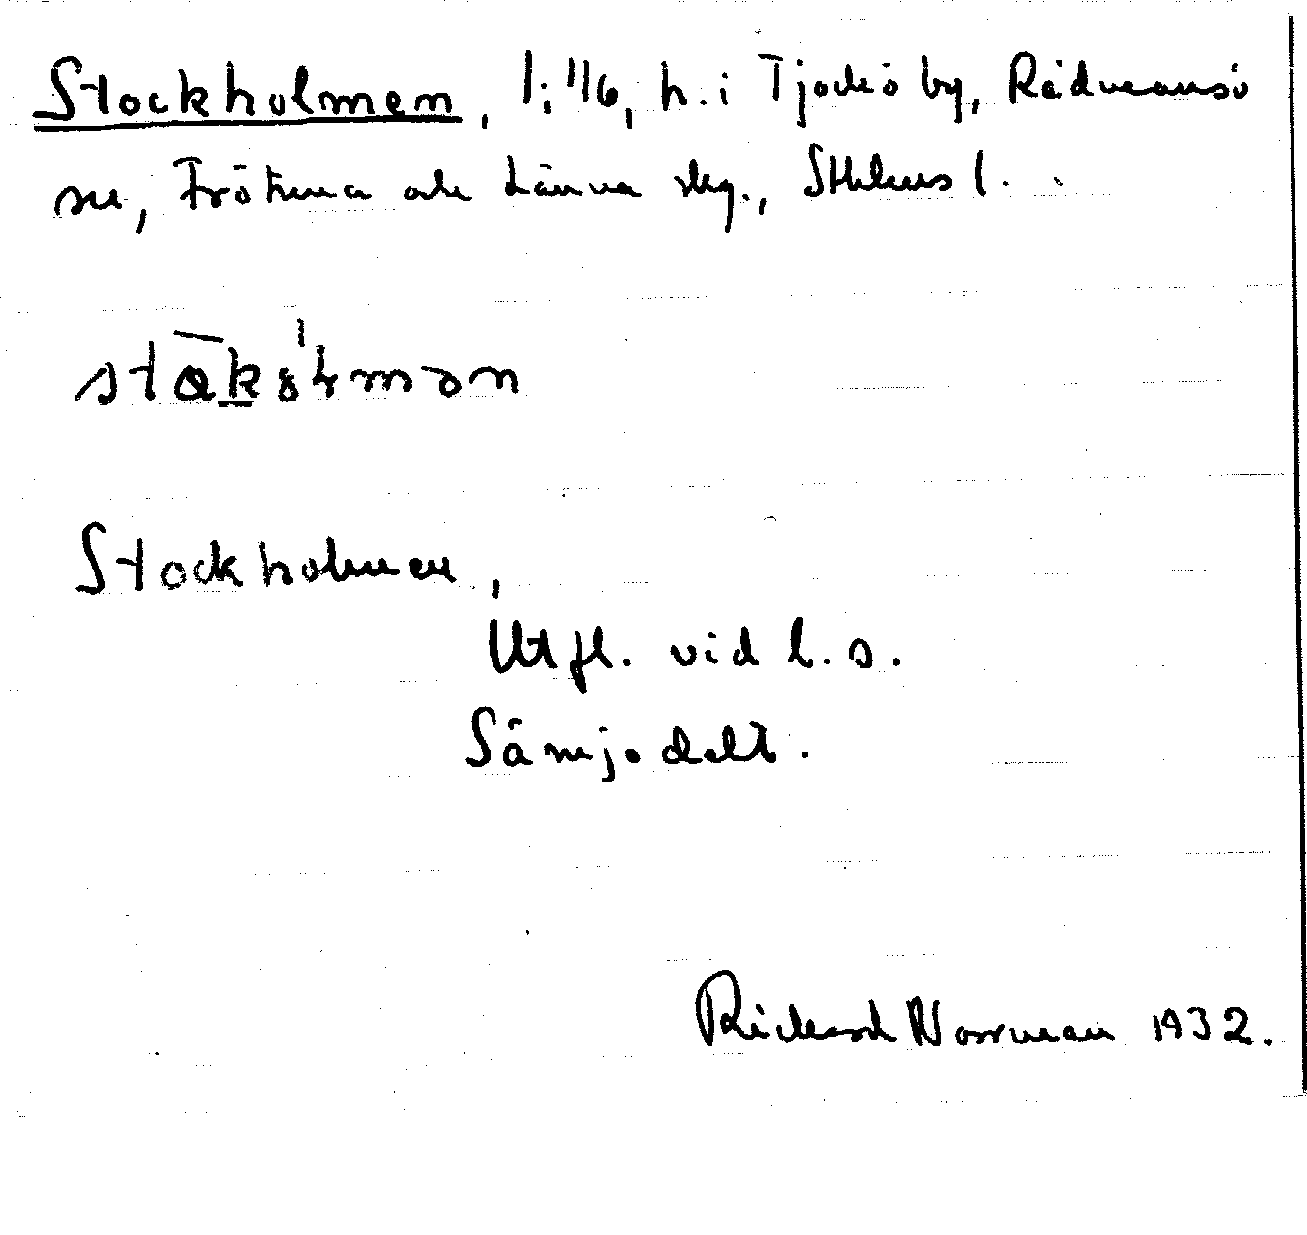 Stockholmen, 1:116, h. i Tjockö by, Rådmansö
sn, Frötuna och Länna skg., Sthlms l.
Stockholmen,
Utfl. vid l. s.
Sämjedelt.
Rickard Norrman 1932.